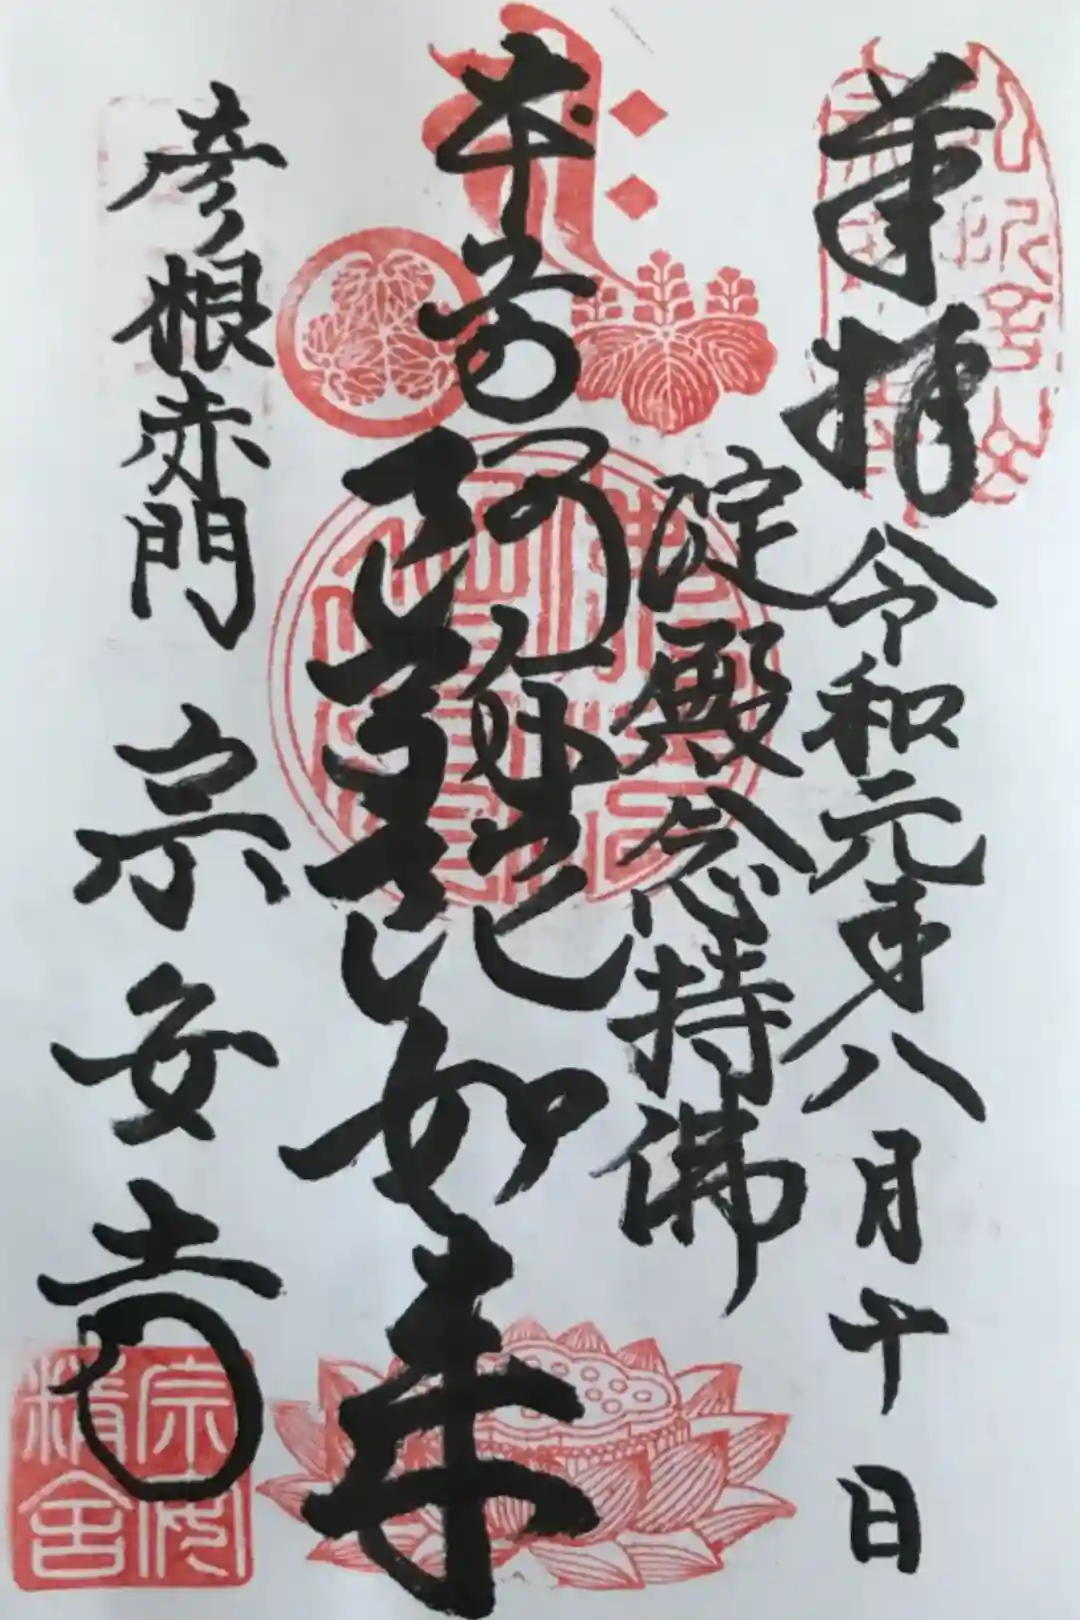 奉拝 令和元年八月十日
淀殿念持佛
本尊 阿弥陀如来
彦根赤門 宗安寺
宗安
精舎